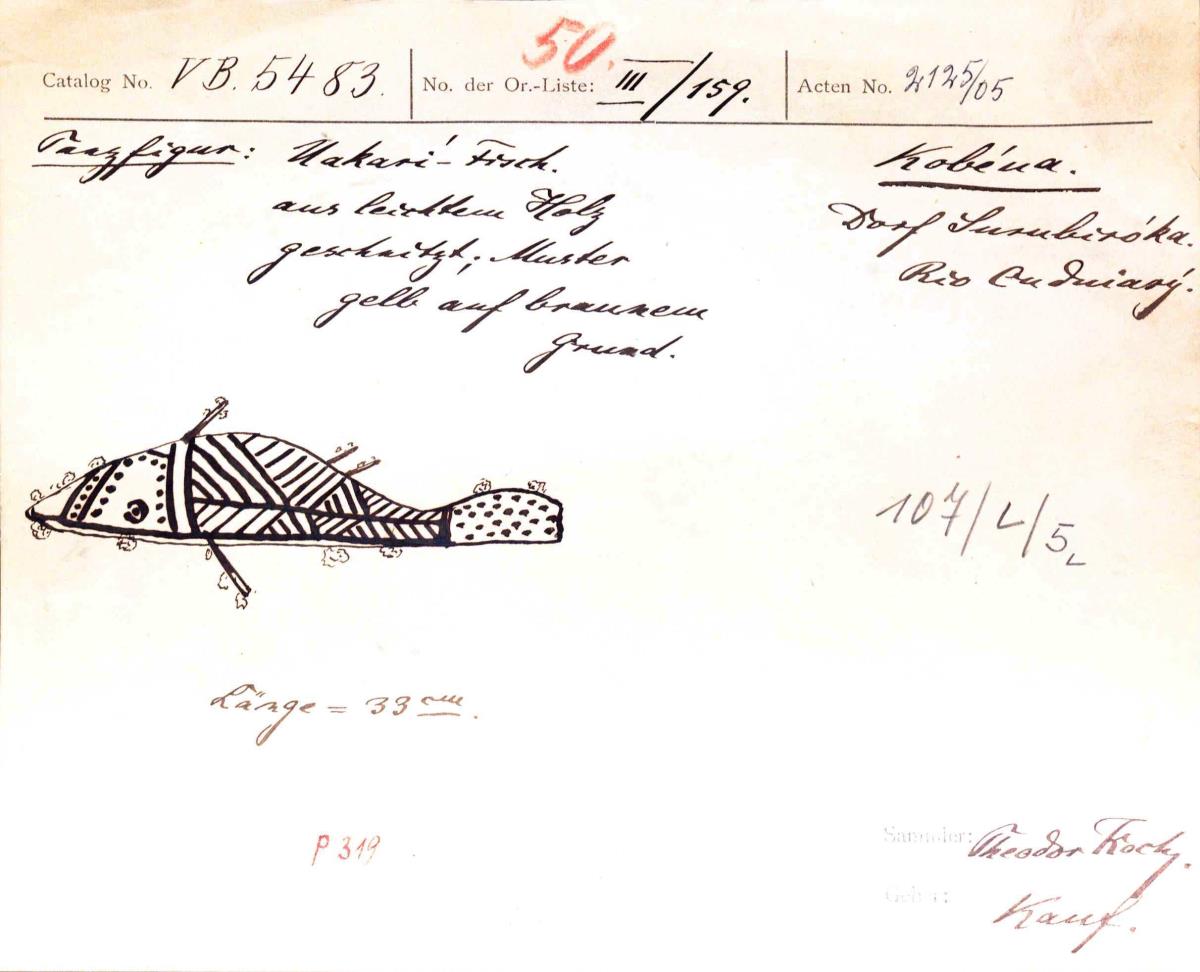 50.
Catalog No. VB. 5483. No. der Or.-Liste: III/159. Acten No. 2125/05
Tanzfigur: Uakari-Fisch. Kobéua.
aus leichtem Holz Dorf Surubiróka.
geschnitzt; Muster Rio Cuduiarý.
gelb auf braunem
Grund.
107/L/5
Länge = 33 cm.
P 319
Sammler: Theodor Koch.
Geber: Kauf.